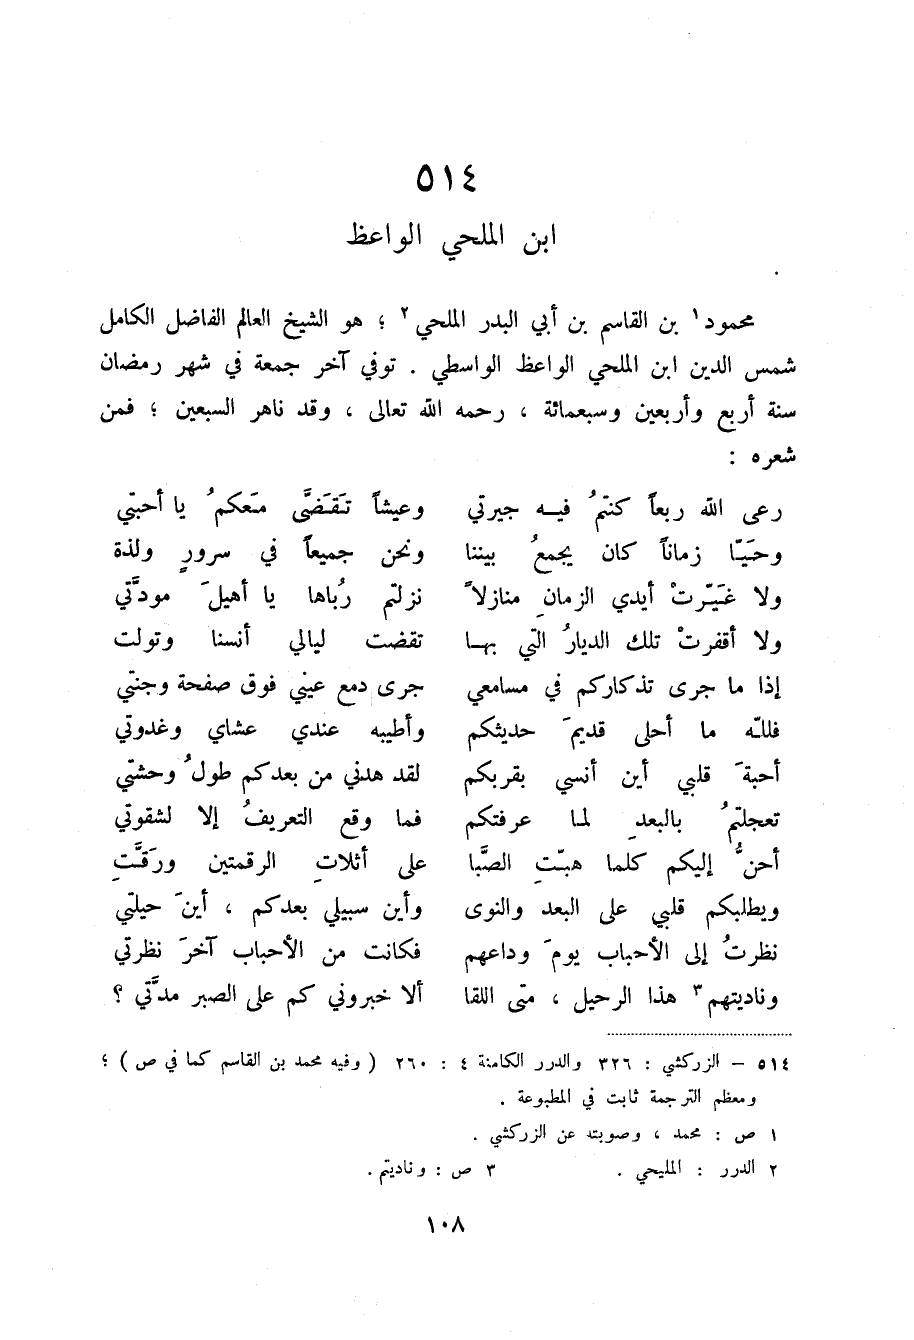 ٥١٤
ابن الملحي الواعظ
محمود١ بن القاسم بن أبي البدر الملحي٢ ؛ هو الشيخ العالم الفاضل الكامل
شمس الدين ابن الملحي الواعظ الواسطي . توفي آخر جمعة في شهر رمضان
سنة أربع وأربعين وسبعمائة ، رحمه الله تعالى ، وقد ناهر السبعين ؛ فمن
شعره :
رعى الله ربعاً كنتمُ فيـه جيرتي وعيشاً تَقَضَّى مَعكمُ يا أحبتّي
وحَيّا زماناً كان يجمعُ بيننا ونحن جميعاً في سرورٍ ولذة
ولا غَيّرتْ أيدي الزمانِ منازلاً نزلتم رُباها يا أهيلَ مودَّتي
ولا أقفرتْ تلك الديارُ التي بهـا تقضت ليالي أنسنا وتولت
إذا ما جرى تذكاركم في مسامعي جرى دمع عيني فوق صفحة وجنتي
فللّه ما أحلى قديمَ حديثكم وأطيبه عندي عشاي وغدوتي
أحبةَ قلبي أين أنسي بقربكم لقد هدني من بعدكم طولُ وحشتي
تعجلتمُ بالبعدِ لمـا عرفتكم فما وقع التعريفُ إلا لشقوتي
أحنُّ إليكم كلما هبتِّ الصَّبا على أثلاتِ الرقمتين ورَقَّتِ
ويطلبكم قلبي على البعد والنوى وأين سبيلي بعدكم ، أينَ حيلتي
نظرتُ إلى الأحباب يومَ وداعهم فكانت من الأحباب آخرَ نظرتي
وناديتهم٣ هذا الرحيل ، متى اللقا ألا خبروني كم على الصبر مدَّتي ؟
٥١٤ – الزركشي : ٣٢٦ والدرر الكامنة ٤ : ٢٦٠ ( وفيه محمد بن القاسم كما في ص ) ؛
ومعظم الترجمة ثابت في المطبوعة .
١ ص : محمد ، وصوبته عن الزركشي .
٢ الدرر : المليحي . ٣ ص : وناديتم .
١٠٨